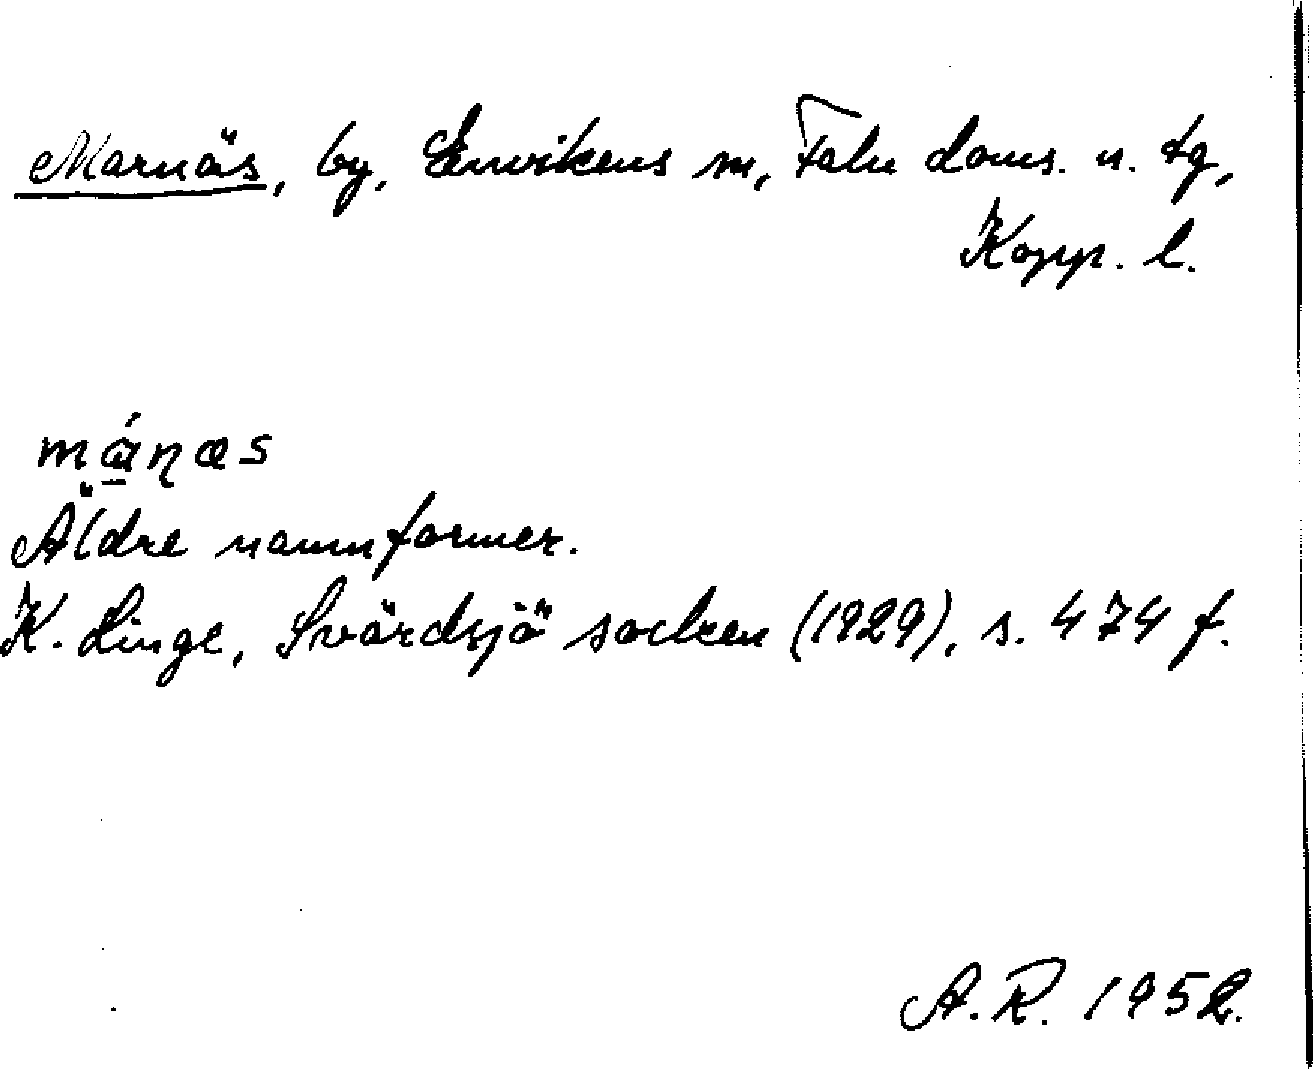 Marnäs, by, Envikens sn, Falu doms. n. tg,
Kopp. l.
mánas
Äldre namnformer.
K. Linge, Svärdsjö socken (1929), s. 474 f.
A. R. 1952.